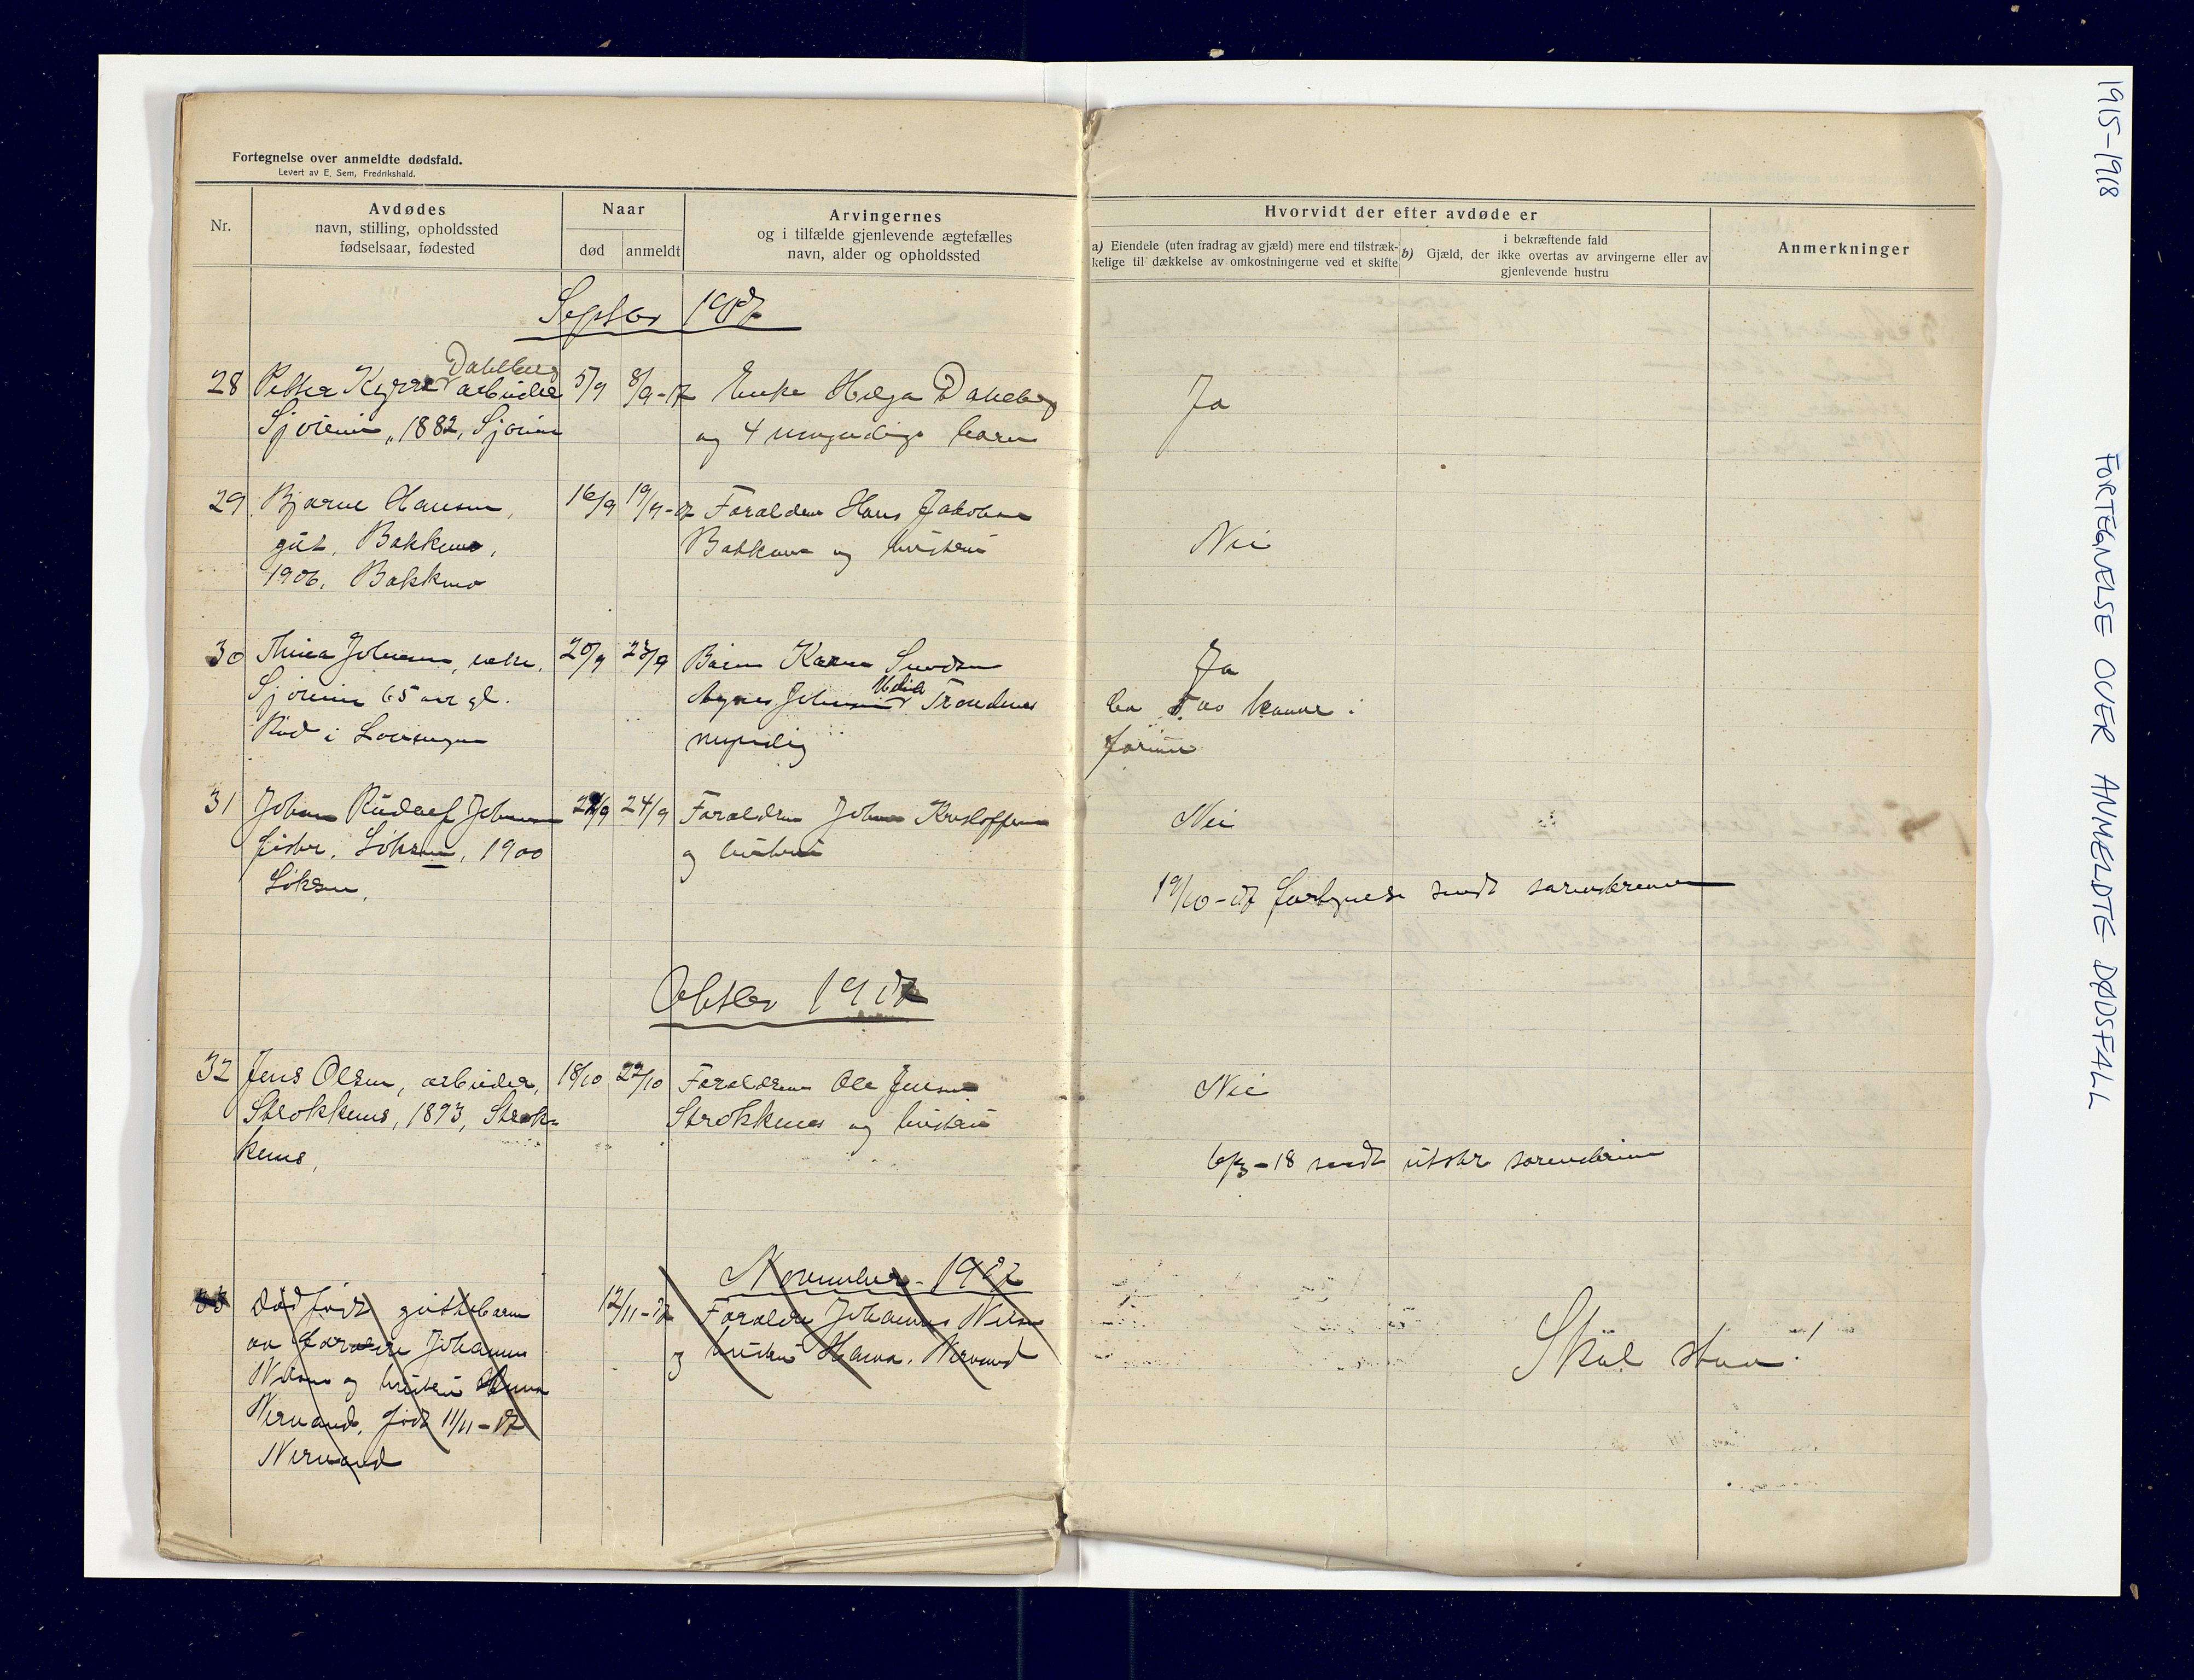 Fortegnelse over anmeldte dødsfald.
Levert av E. Sem, Fredrikshald.
Nr.
Avdødes
navn, stilling, opholdssted
fødselsaar, fødested
Naar
død
anmeldt
Arvingernes
og i tilfælde gjenlevende ægtefælles
navn, alder og opholdssted
Hvorvidt der efter avdøde er
a) Eiendele (uten fradrag av gjæld) mere end tilstræk-
kelige til dækkelse av omkostningerne ved et skifte
i bekræftende fald
b) Gjæld, der ikke overtas av arvingerne eller av
gjenlevende hustru
Anmerkninger
Septbr 1917
Dahlberg
28 Petter arbeider 5/9 8/9-17 Enke Helga Dahlberg Ja
1882, og 4 umyndige barn
29 Bjarne Hansen, 16/9 19/9-17 Forældre Hans Jakobsen
gut, Bakkemo, Bakkemo og hustru Nei
1906, Bakkemo
30 Johnsen, enke, 20/9 23/9 Børn Karen Ja
65 aar gl. Agnes Johnsen Trondenes ca 500 kroner i
Rød i myndig formue
31 Johan Rudolf Johansen 24/9 Forældrene Johan Kristoffersen Nei
fisker, 1900 og hustru
19/10-17 fortegnelse sendt sorenskriveren
Oktbr 1917
32 Jens Olsen, arbeider, 18/10 22/10 Forældrene Ole Jensen Nei
Strokkenes, 1893, Strok-
kenes, Strokkenes og hustru
6/3-18 sendt utskr sorenskriveren
November 1917
33 Dødfødt guttebarn 12/11-17 Forældre Johannes Nilsen
av forældre Johannes og hustru Hanna, Nervand Skal staa!
Nilsen og hustru Hanna
Nervand, født 11/11-17
Nervand
1915-1918 FORTEGNELSE OVER ANMELDTE DØDSFALL